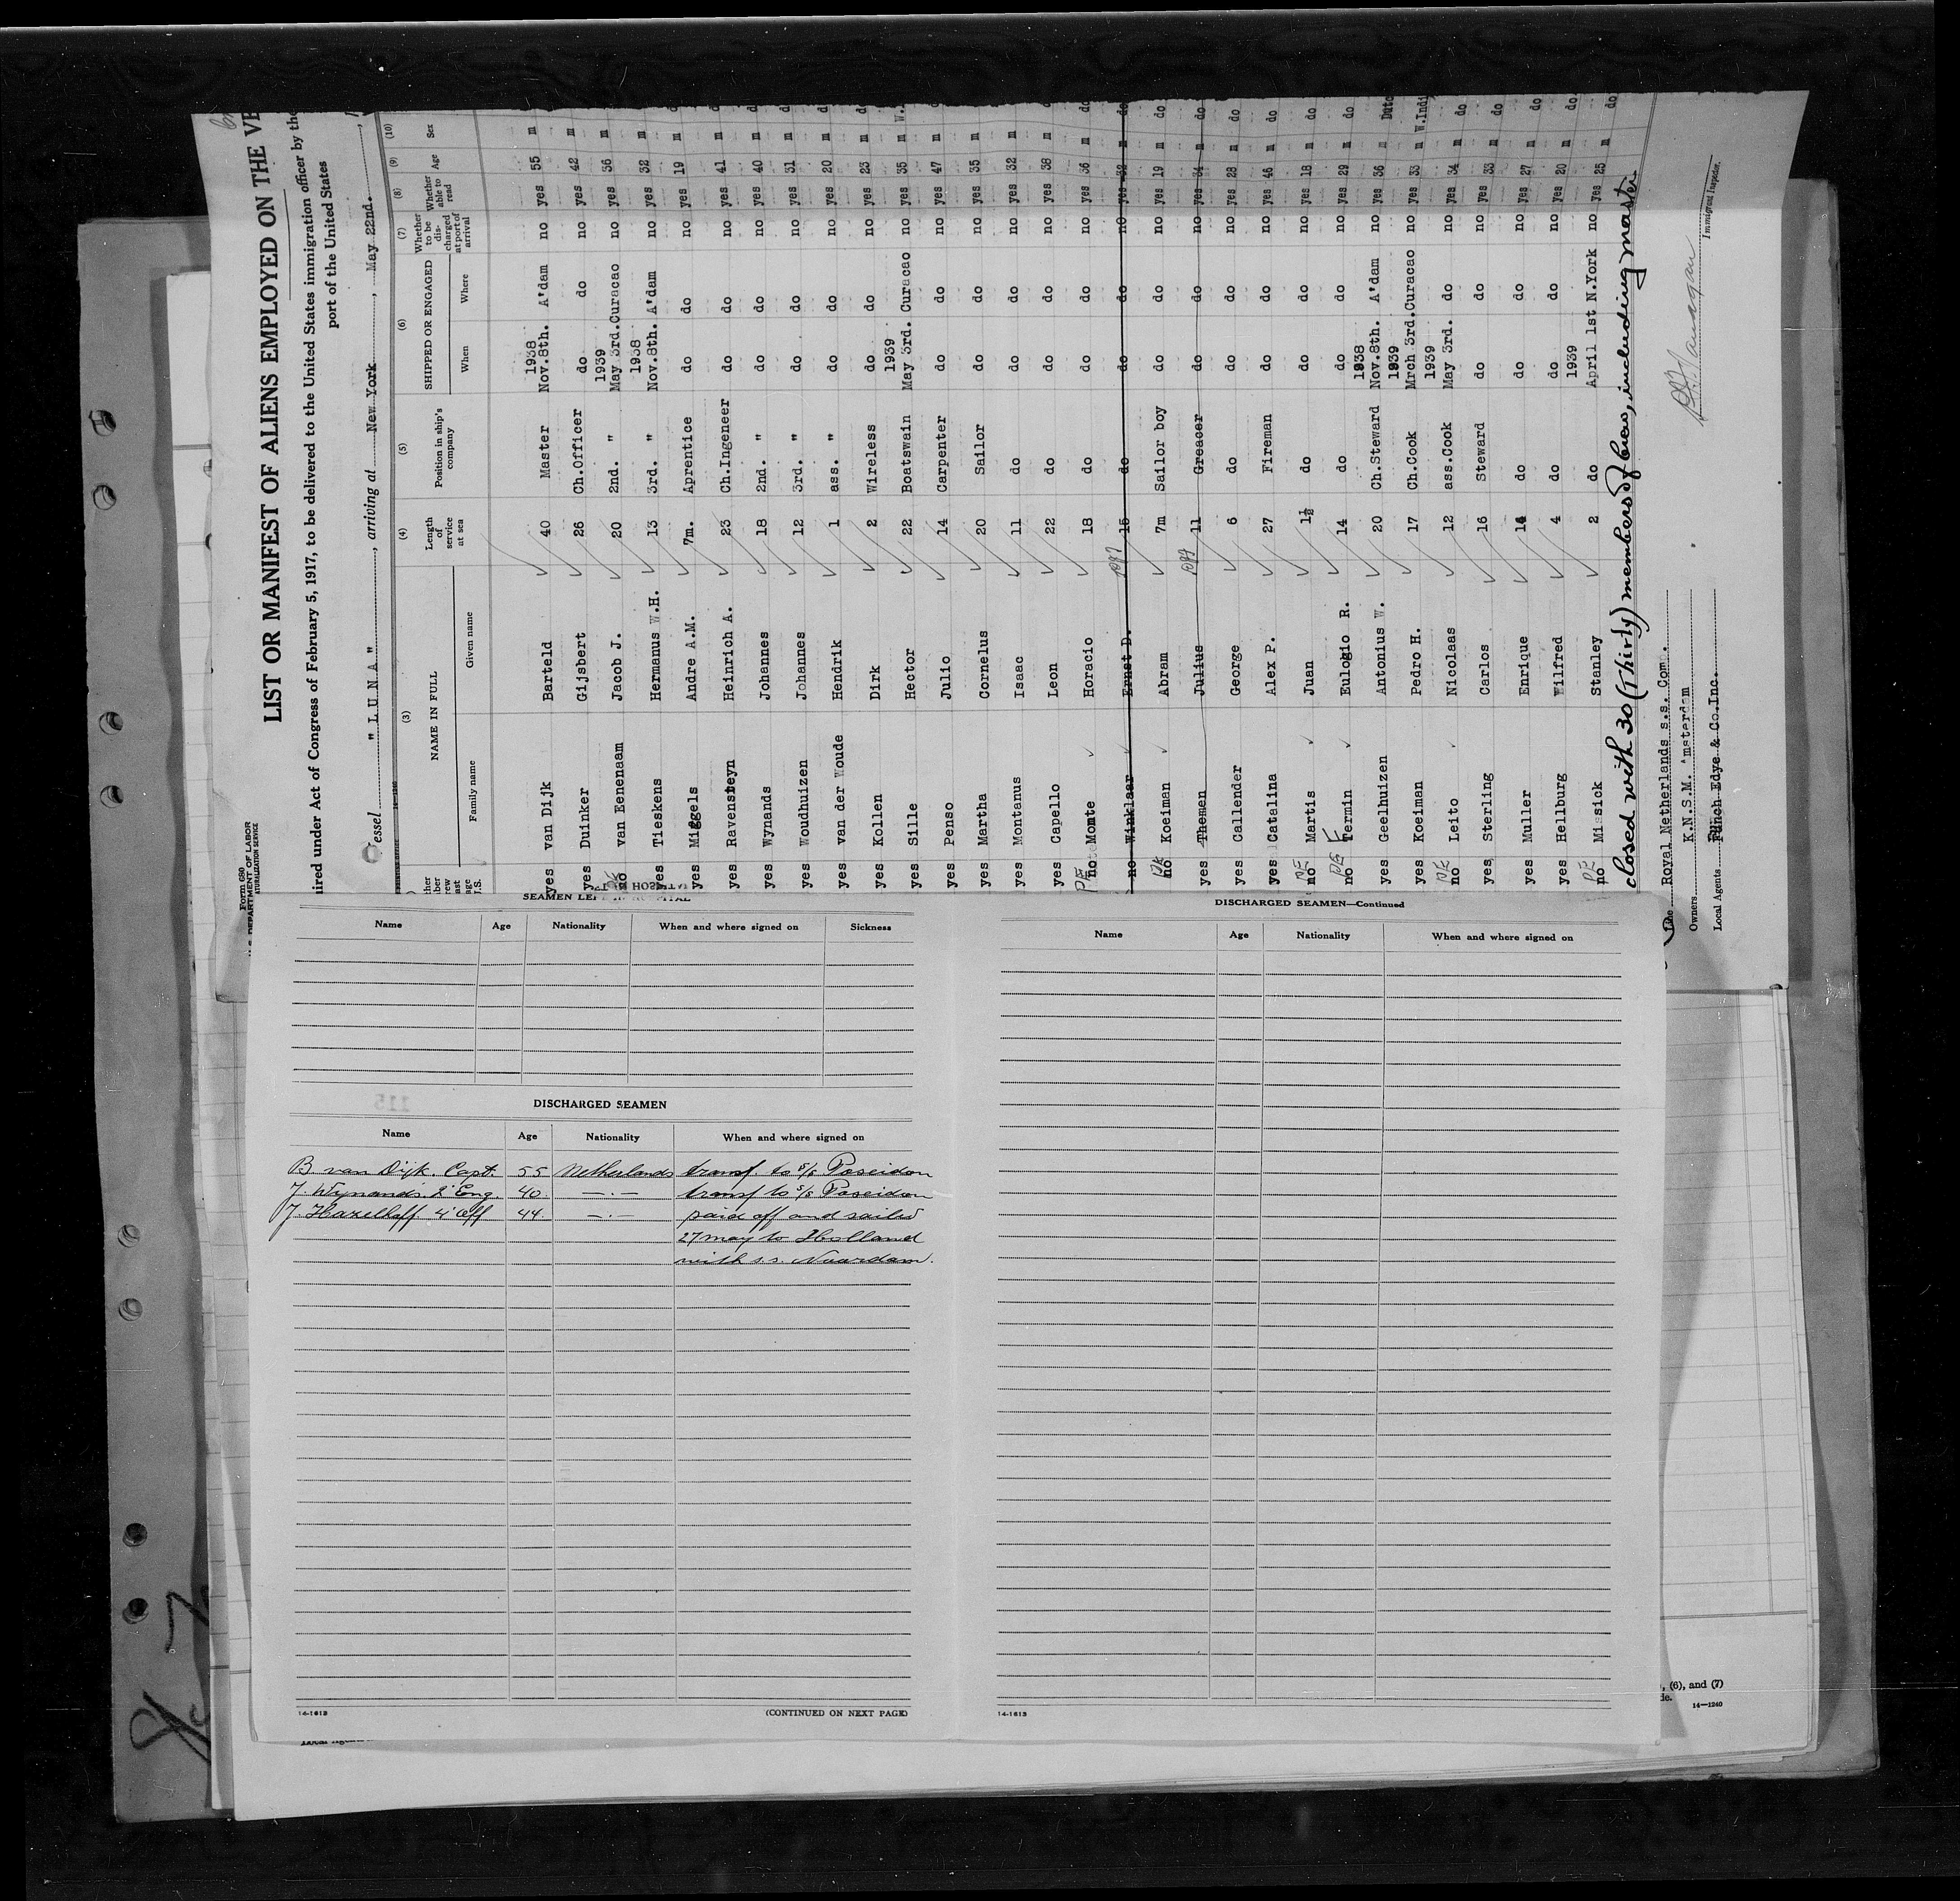 Form 680
U.S. DEPARTMENT OF LABOR
LIST OR MANIFEST OF ALIENS EMPLOYED ON THE VE
ired under Act of Congress of February 5, 1917, to be delivered to the United States immigration officer by the
port of the United States
essel "LUNA", arriving at New York, May 22nd.
(3) (4) (5) (6) (7) (8) (9) (10)
NAME IN FULL
Family name Given name
Length of service at sea
Position in ship's company
SHIPPED OR ENGAGED
When Where
Whether to be discharged at port of arrival
Whether able to read
Age
Sex
yes van Dijk Barteld 40 Master 1938 Nov.8th. A'dam no yes 55 m
yes Duinker Gijsbert 26 Ch.Officer do do no yes 42 m
no van Eenenaam Jacob J. 20 2nd. " 1939 May 3rd. Curacao no yes 36 m do
yes Tieskens Hermanus W.H. 13 3rd. " 1938 Nov.8th. A'dam no yes 32 m
yes Miggels Andre A.M. 7m. Aprentice do do no yes 19 m
yes Ravensteyn Heinrich A. 23 Ch.Ingeneer do do no yes 41 m
yes Wynands Johannes 18 2nd. " do do no yes 40 m
yes Woudhuizen Johannes 12 3rd. " do do no yes 31 m
yes van der Woude Hendrik 1 ass. " do do no yes 20 m
yes Kollen Dirk 2 Wireless do do no yes 23 m
yes Sille Hector 22 Boatswain 1939 May 3rd. Curacao no yes 35 m
yes Penso Julio 14 Carpenter do do no yes 47 m
yes Martha Cornelus 20 Sailor do do no yes 35 m
yes Montanus Isaac 11 do do do no yes 32 m
yes Capello Leon 22 do do do no yes 38 m
no Momte Horacio 18 do do do no yes 36 m do
no Winklaar Ernst D. 15 do do do no yes 32 m do
no Koeiman Abram 7m Sailor boy do do no yes 19 m do
yes Themen Julius 11 Greacer do do no yes 34 m do
yes Callender George 6 do do do no yes 28 m do
yes Catalina Alex P. 27 Fireman do do no yes 46 m do
no Martis Juan 1½ do do do no yes 18 m do
no Termin Eulogio R. 14 do do do no yes 29 m do
yes Geelhuizen Antonius W. 20 Ch.Steward 1938 Nov.8th. A'dam no yes 36 m Dutc
yes Koeiman Pedro H. 17 Ch.Cook 1939 Mrch 3rd. Curacao no yes 33 m W.Indi
no Leito Nicolaas 12 ass.Cook 1939 May 3rd. do no yes 34 m do
yes Sterling Carlos 16 Steward do do no yes 33 m do
yes Muller Enrique 14 do do do no yes 27 m do
yes Hellburg Wilfred 4 do do do no yes 20 m do
no Missick Stanley 2 do 1939 April 1st N.York no yes 25 m do
closed with 30 (Thirty) members of crew, including master
Line Royal Netherlands s.s. Comp.
Owners K.N.S.M. Amsterdam
Local Agents Funch Edye & Co.Inc.
Immigrant Inspector.
SEAMEN LEFT IN HOSPITAL
Name Age Nationality When and where signed on Sickness
115
DISCHARGED SEAMEN
Name Age Nationality When and where signed on
B. van Dijk. Capt. 55 Netherlands transf. to s/s Poseidon
J. Wynands. 2' Eng. 40. —.— transf to s/s Poseidon
J. Hazelhoff 4' Off 44. —.— paid off and sailed
27 may to Holland
with s.s. Noordam.
14-1613
(CONTINUED ON NEXT PAGE)
DISCHARGED SEAMEN—Continued
Name Age Nationality When and where signed on
14-1613
, (6), and (7)
de.
14—1240